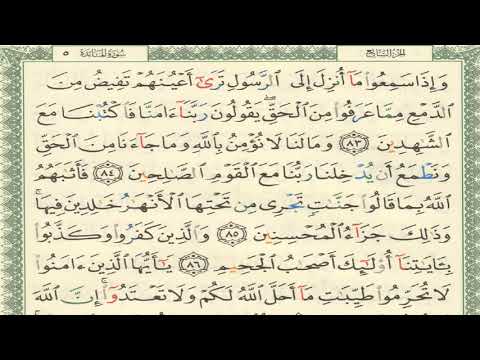 سورة المائدة ٥ الجزء السابع
وَإِذَا سَمِعُوا۟ مَآ أُنزِلَ إِلَى ٱلرَّسُولِ تَرَىٰٓ أَعْيُنَهُمْ تَفِيضُ مِنَ
ٱلدَّمْعِ مِمَّا عَرَفُوا۟ مِنَ ٱلْحَقِّ ۖ يَقُولُونَ رَبَّنَآ ءَامَنَّا فَٱكْتُبْنَا مَعَ
ٱلشَّٰهِدِينَ ٨٣ وَمَا لَنَا لَا نُؤْمِنُ بِٱللَّهِ وَمَا جَآءَنَا مِنَ ٱلْحَقِّ
وَنَطْمَعُ أَن يُدْخِلَنَا رَبُّنَا مَعَ ٱلْقَوْمِ ٱلصَّٰلِحِينَ ٨٤ فَأَثَٰبَهُمُ
ٱللَّهُ بِمَا قَالُوا۟ جَنَّٰتٍ تَجْرِى مِن تَحْتِهَا ٱلْأَنْهَٰرُ خَٰلِدِينَ فِيهَا ۚ
وَذَٰلِكَ جَزَآءُ ٱلْمُحْسِنِينَ ٨٥ وَٱلَّذِينَ كَفَرُوا۟ وَكَذَّبُوا۟
بِـَٔايَٰتِنَآ أُو۟لَٰٓئِكَ أَصْحَٰبُ ٱلْجَحِيمِ ٨٦ يَٰٓأَيُّهَا ٱلَّذِينَ ءَامَنُوا۟
لَا تُحَرِّمُوا۟ طَيِّبَٰتِ مَآ أَحَلَّ ٱللَّهُ لَكُمْ وَلَا تَعْتَدُوٓا۟ ۚ إِنَّ ٱللَّهَ